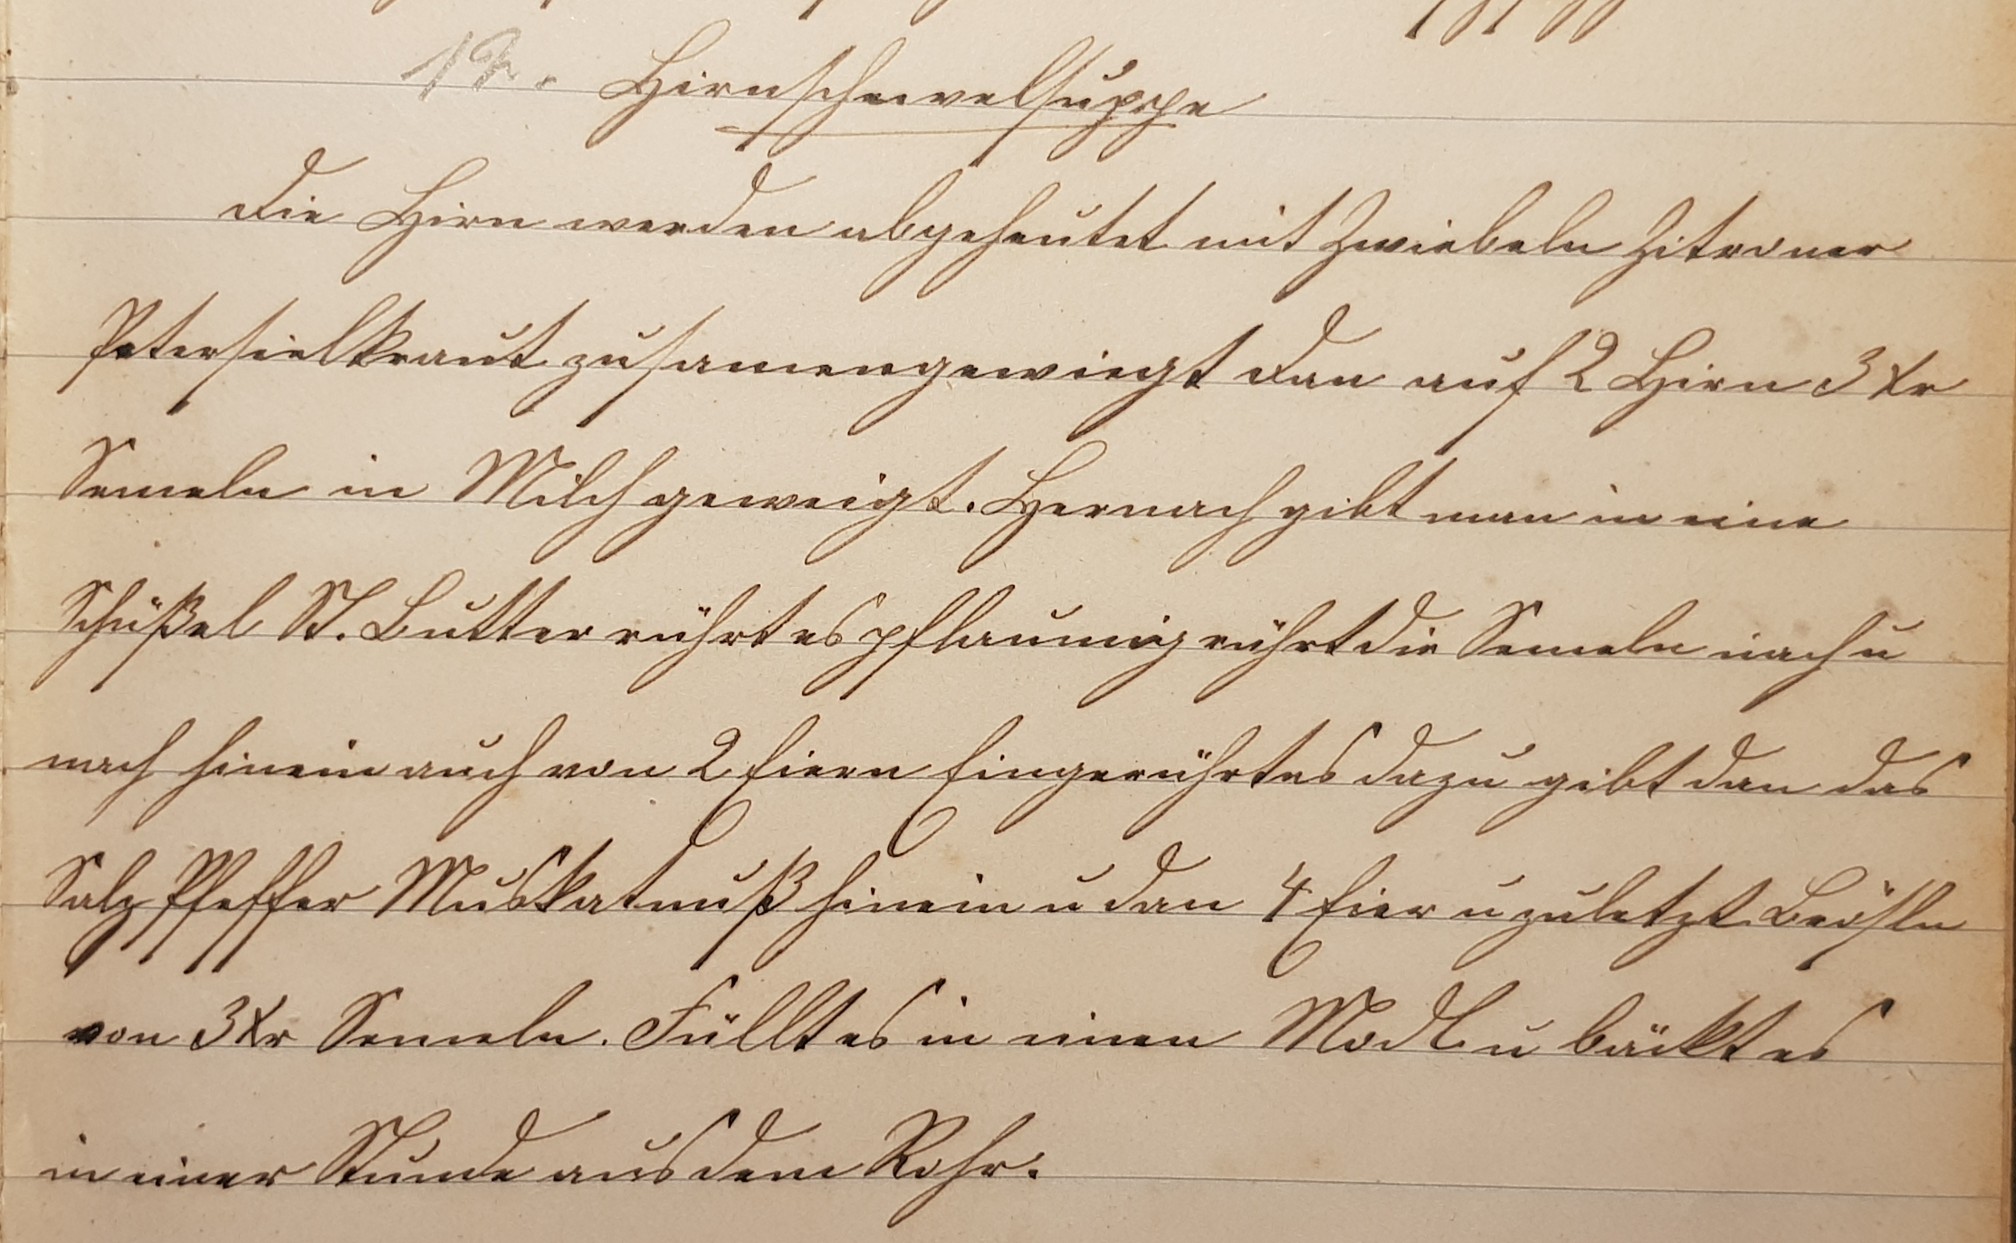 12. Hirnschewelsuppe
Die Hirn werden abgeheutet mit Zwiebeln Zitroner
Petersielkraut zusamengewiegt dan auf 2 Hirn 3 Xr
Semeln in Milch geweigt. Hernach gibt man in eine
Schüßel St. Butter rührt es pflaumig rührt die Semeln nach u
nach hinein auch von 2 Eiern Eingerührtes dazu gibt dan das
Salz Pfeffer Muskatnuß hinein u dan 4 Eier u zuletzt Bröseln
von 3 Xr Semeln. Füllt es in einen Modl u bäckt es
in einer Stunde aus dem Rohr.